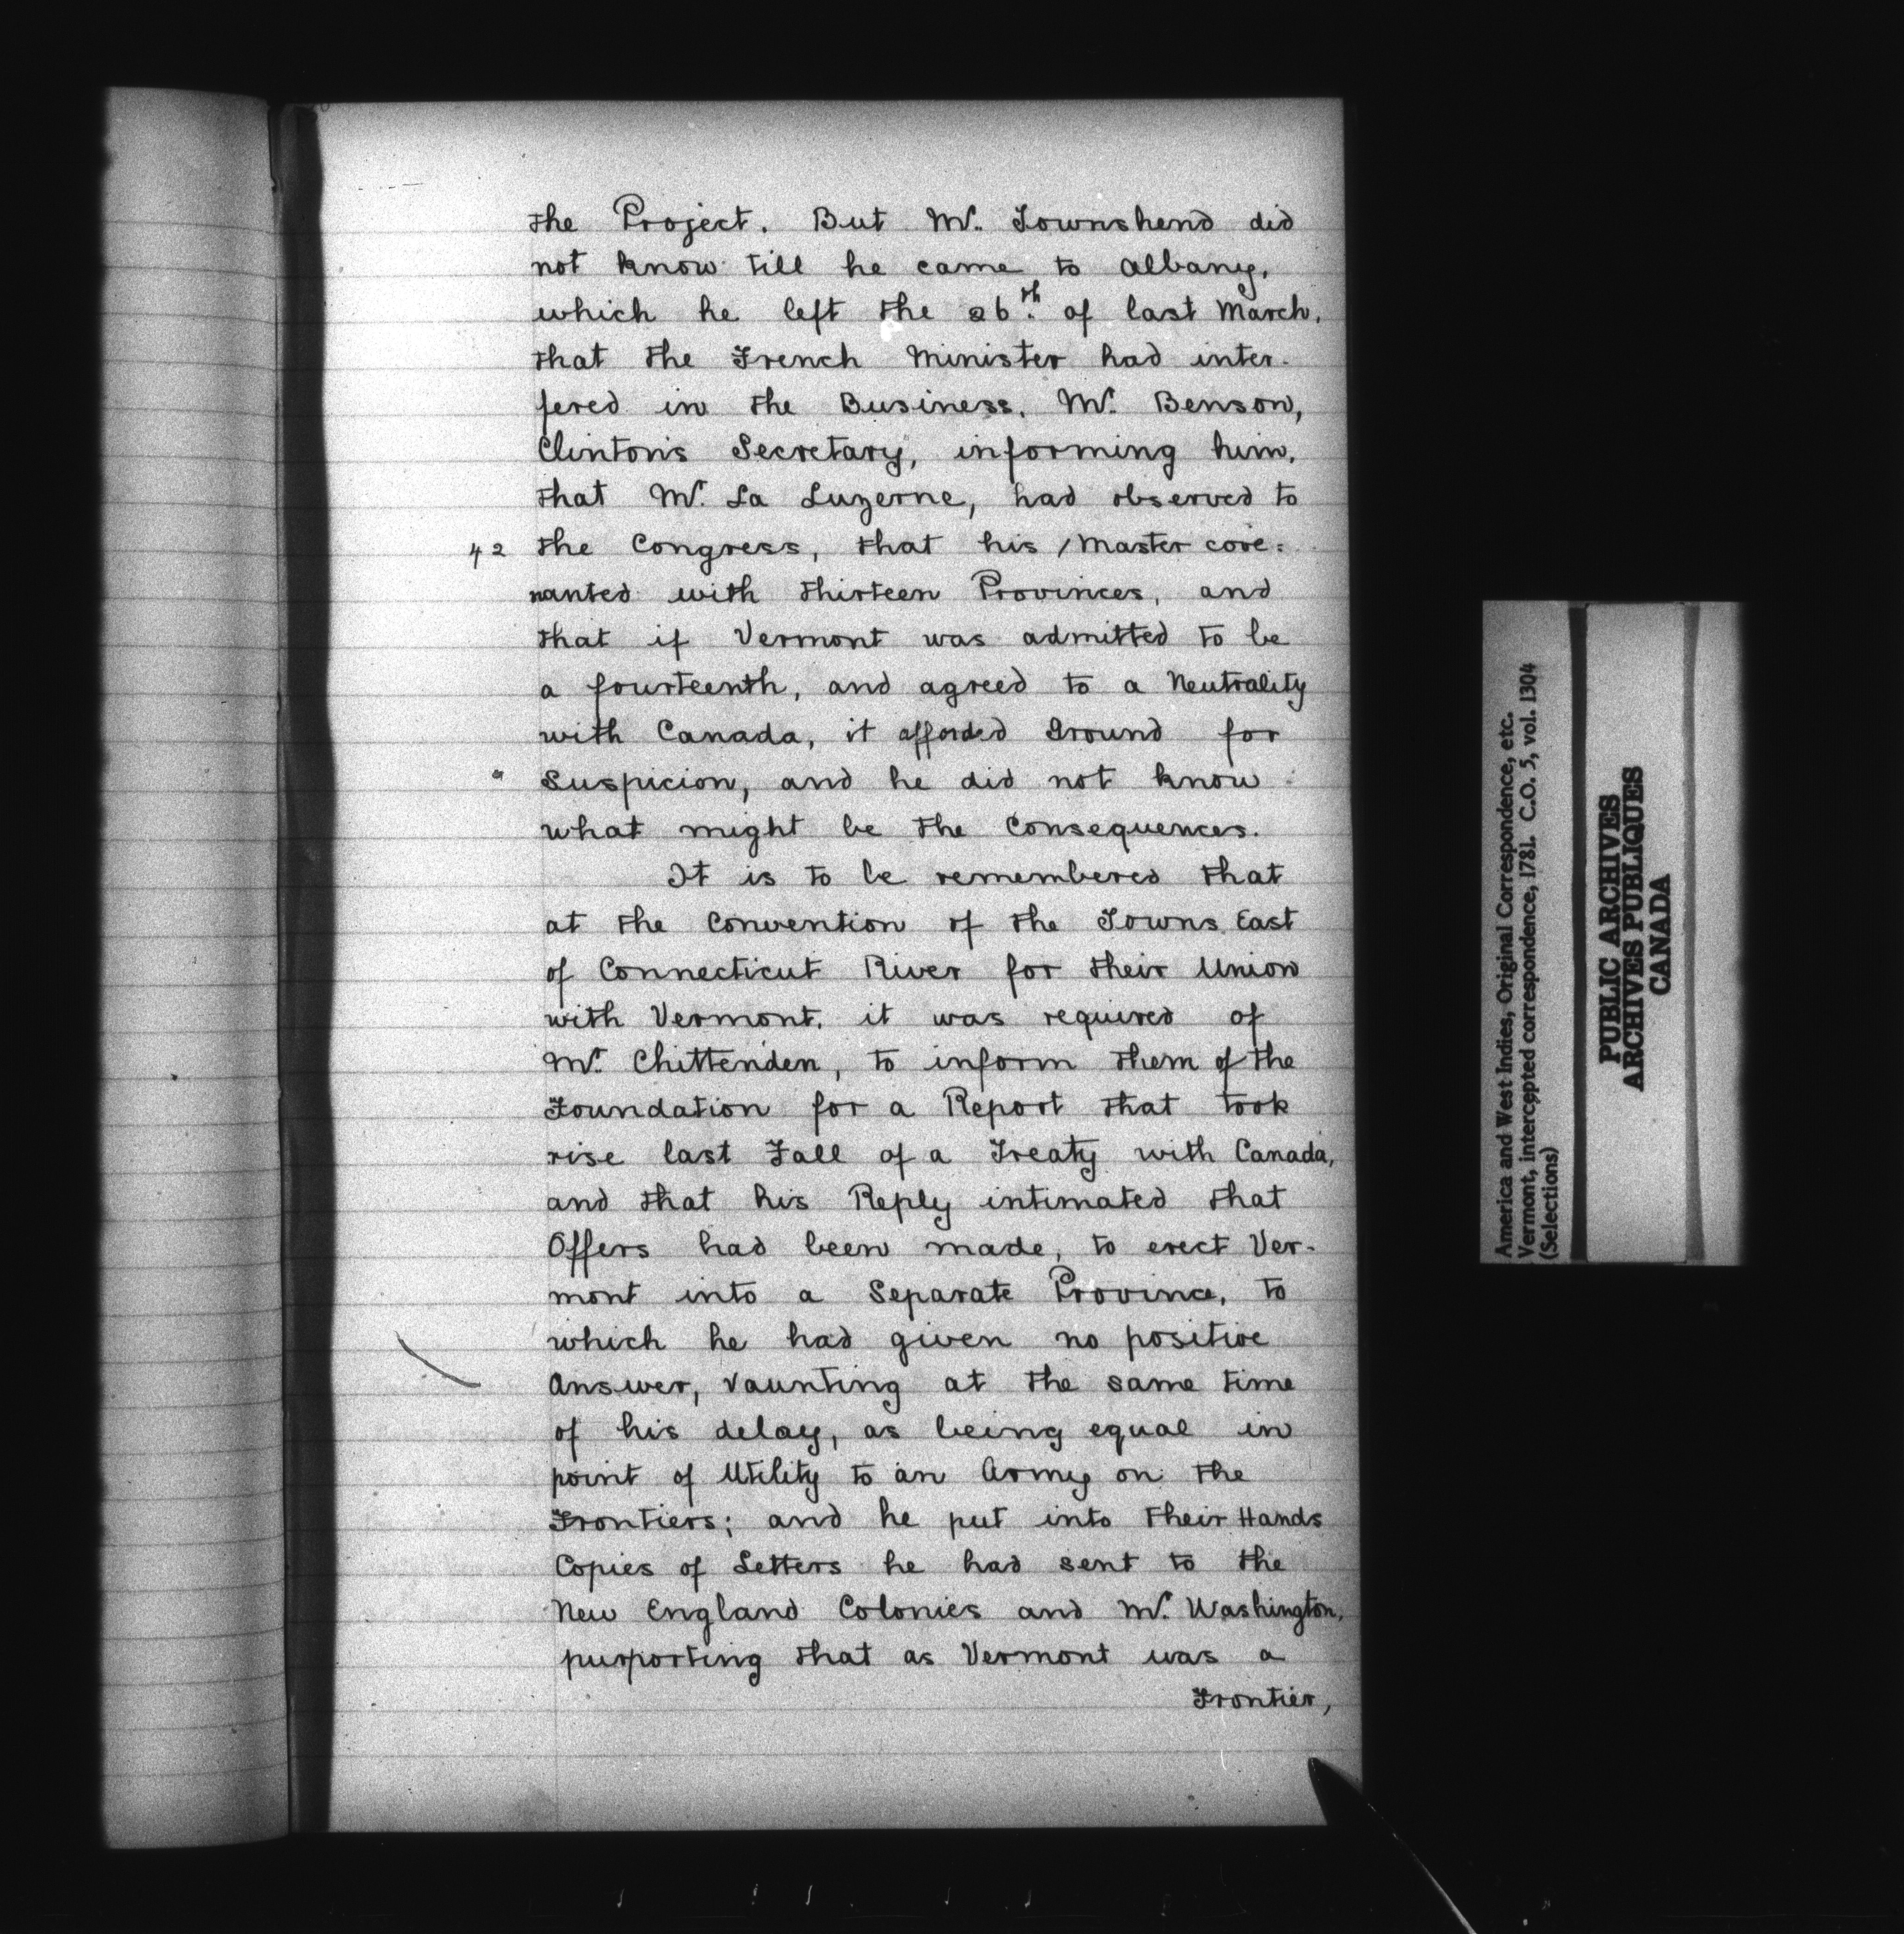 the Project. But Mr. Townshend did
not know till he came to Albany,
which he left the 26th. of last March,
that the French Minister had inter-
fered in the Business, Mr. Benson,
Clinton's Secretary, informing him,
that Mr. La Luzerne, had observed to
42 the Congress, that his /Master cove=
nanted with thirteen Provinces, and
that if Vermont was admitted to be
a fourteenth, and agreed to a Neutrality
with Canada, it afforded Ground for
Suspicion, and he did not know
what might be the Consequences.
It is to be remembered that
at the Convention of the Towns East
of Connecticut River for their Union
with Vermont, it was required of
Mr. Chittenden, to inform them of the
Foundation for a Report that took
rise last Fall of a Treaty with Canada,
and that his Reply intimated that
Offers had been made, to erect Ver-
mont into a Separate Province, to
which he had given no positive
Answer, vaunting at the same time
of his delay, as being equal in
point of Utility to an Army on the
Frontiers; and he put into their Hands
Copies of Letters he had sent to the
New England Colonies and Mr. Washington,
purporting that as Vermont was a
Frontier,
America and West Indies, Original Correspondence, etc.
Vermont, intercepted correspondence, 1781. C.O. 5, vol. 1304
(Selections)
PUBLIC ARCHIVES
ARCHIVES PUBLIQUES
CANADA